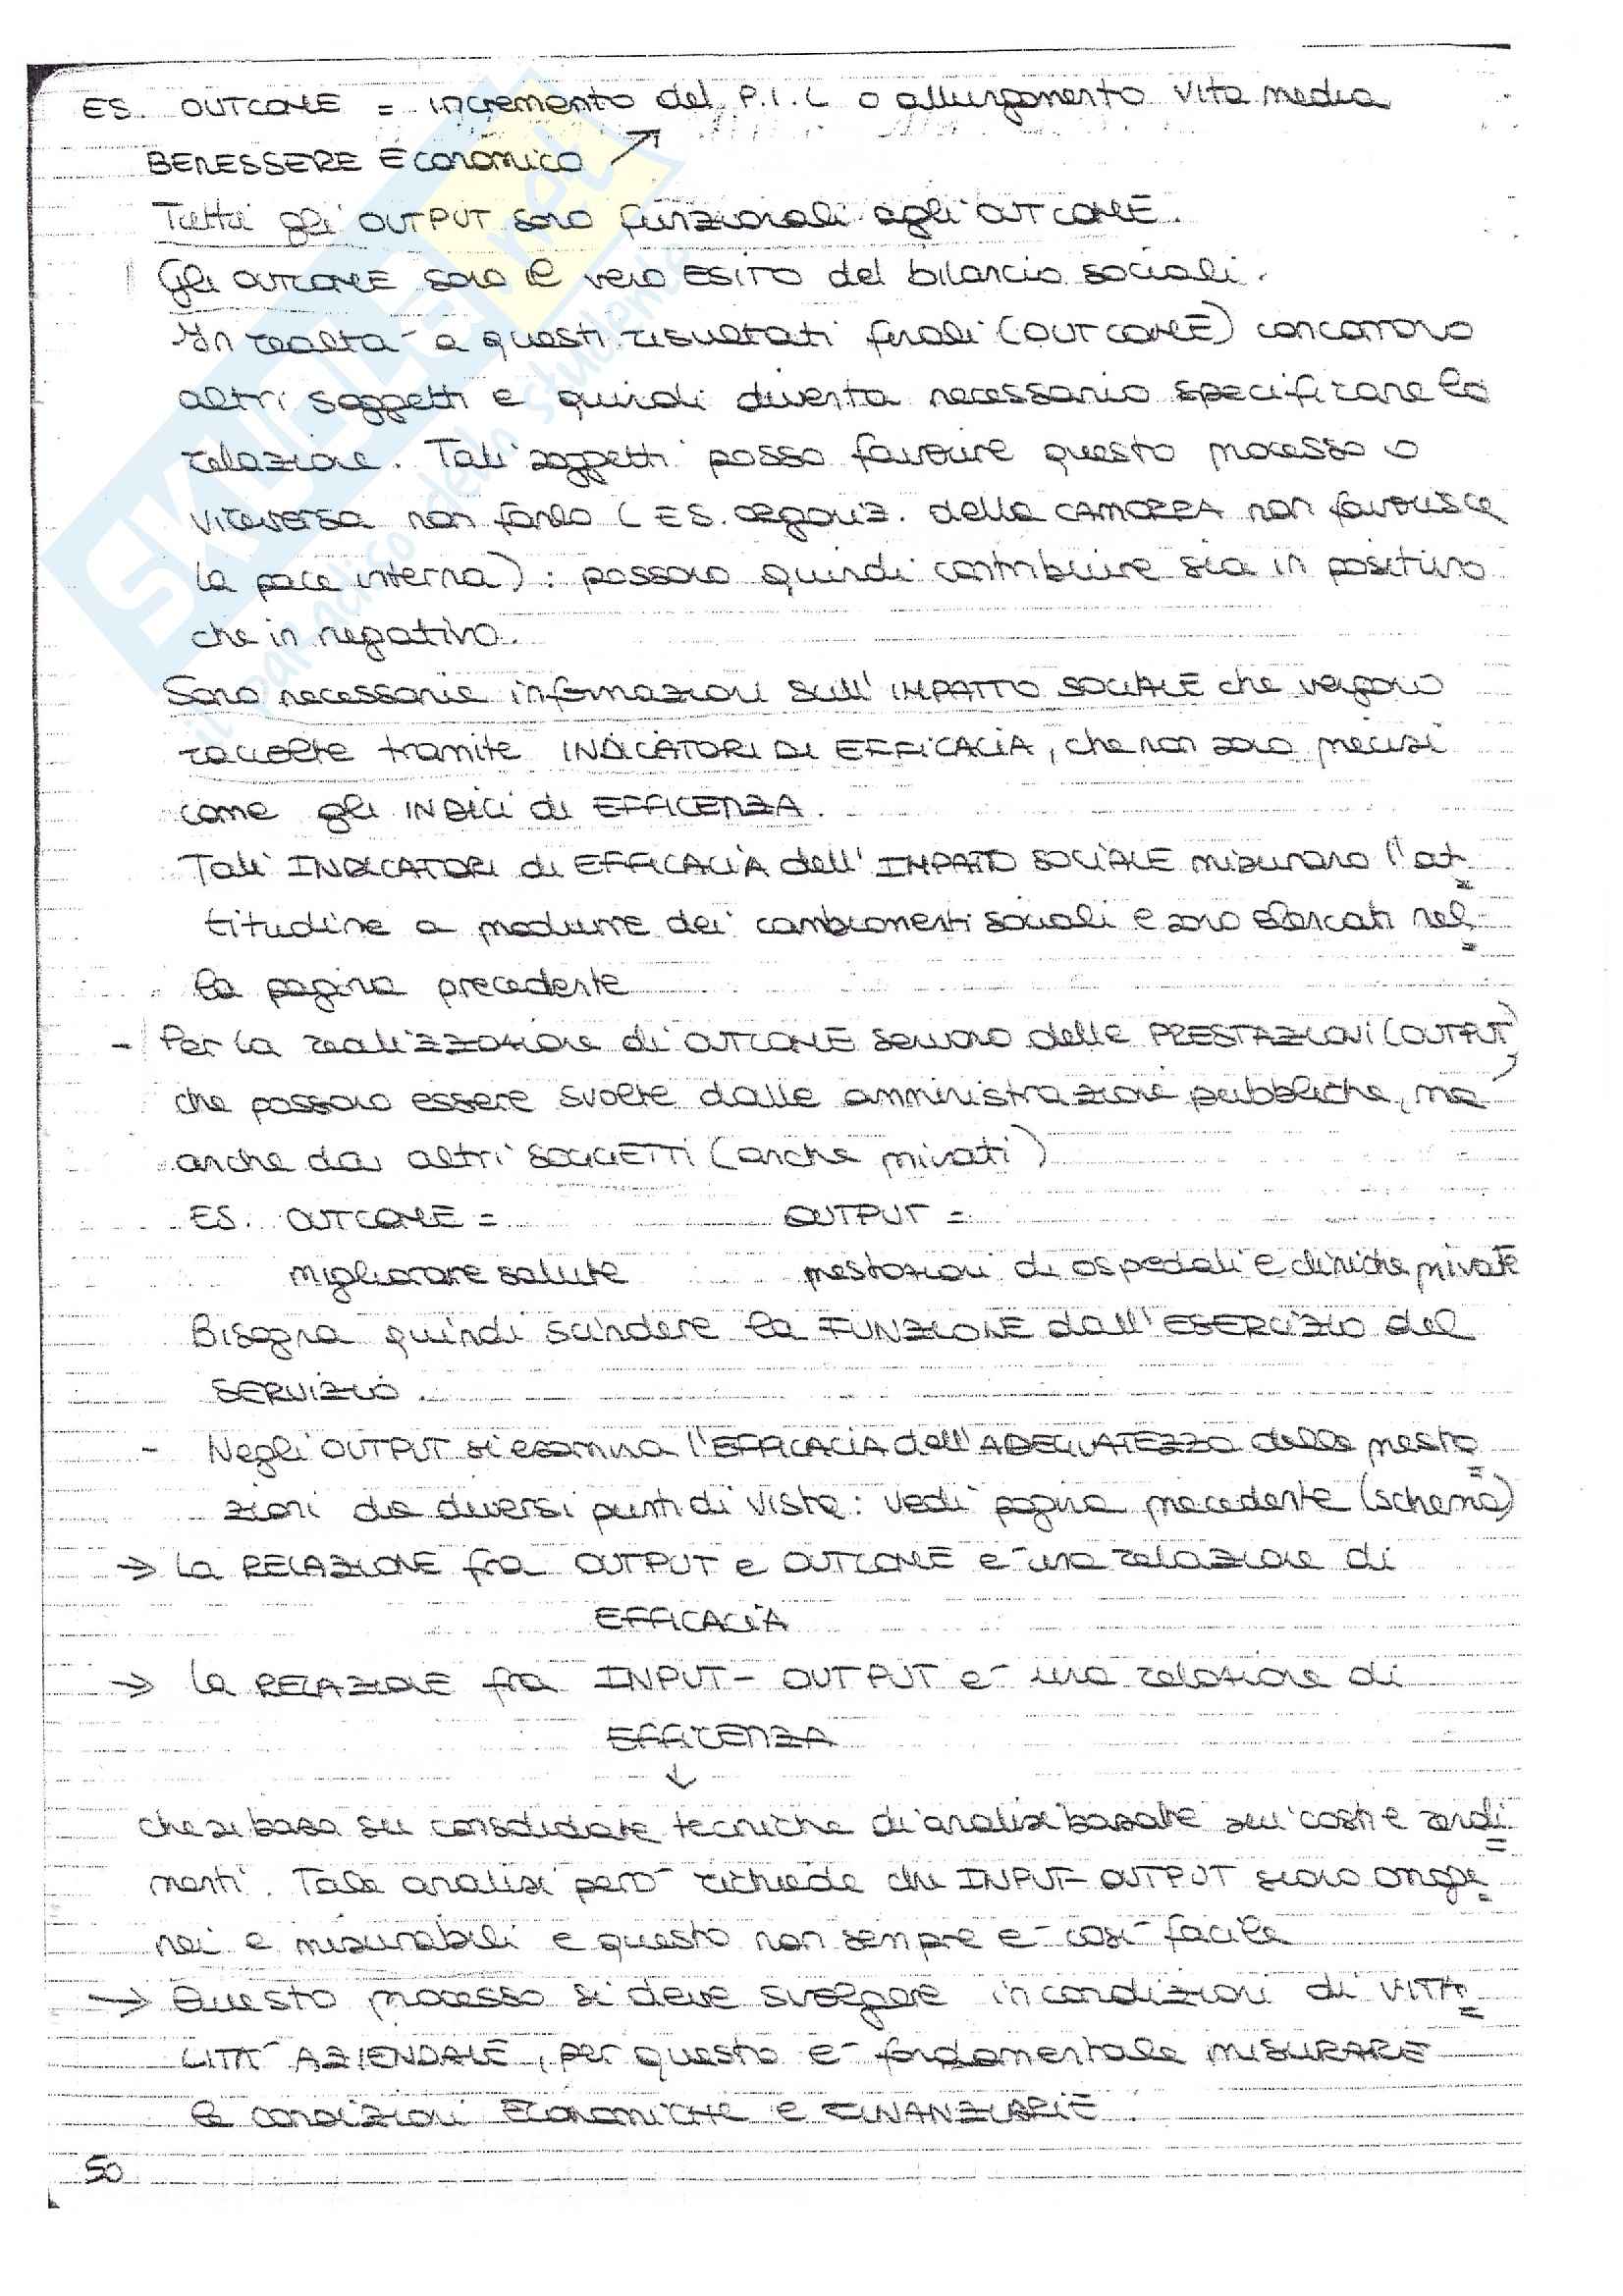 ES. OUTCOME = incremento del P.I.L o allungamento vita media
BENESSERE ECONOMICO ↗
Tutti gli OUTPUT sono funzionali agli OUTCOME.
Gli OUTCOME sono il vero ESITO del bilancio sociali.
In realtà a questi risultati finali (OUTCOME) concorrono
altri soggetti e quindi diventa necessario specificare la
relazione. Tali soggetti posso favorire questo processo o
viceversa non farlo (ES. organiz. della CAMORRA non favorisce
la pace interna): possono quindi contribuire sia in positivo
che in negativo.
Sono necessarie informazioni sull'IMPATTO SOCIALE che vengono
raccolte tramite INDICATORI DI EFFICACIA, che non sono precisi
come gli INDICI di EFFICENZA.
Tali INDICATORI di EFFICACIA dell'IMPATTO SOCIALE misurano l'at=
titudine a produrre dei cambiamenti sociali e sono elencati nel=
la pagina precedente
- Per la realizzazione di OUTCOME servono delle PRESTAZIONI (OUTPUT),
che possono essere svolte dalle amministrazione pubbliche, ma
anche da altri SOGGETTI (anche privati)
ES. OUTCOME = OUTPUT =
migliorare salute prestazioni di ospedali e cliniche private
Bisogna quindi scindere la FUNZIONE dall'ESERCIZIO del
SERVIZIO.
- Negli OUTPUT si esamina l'EFFICACIA dell'ADEGUATEZZA delle presta=
zioni da diversi punti di vista: vedi pagina precedente (schema)
→ La RELAZIONE fra OUTPUT e OUTCOME è una relazione di
EFFICACIA
→ la RELAZIONE fra INPUT-OUTPUT è una relazione di
EFFICENZA
↓
che si basa su consolidate tecniche di analisi basate sui costi e rendi=
menti. Tale analisi però richiede che INPUT-OUTPUT siano omoge=
nei e misurabili e questo non sempre è così facile
→ Questo processo si deve svolgere in condizioni di VITA=
LITÀ AZIENDALE, per questo è fondamentale MISURARE
le condizioni ECONOMICHE e FINANZIARIE.
50
SKUOLA.net
il paradiso dello studente